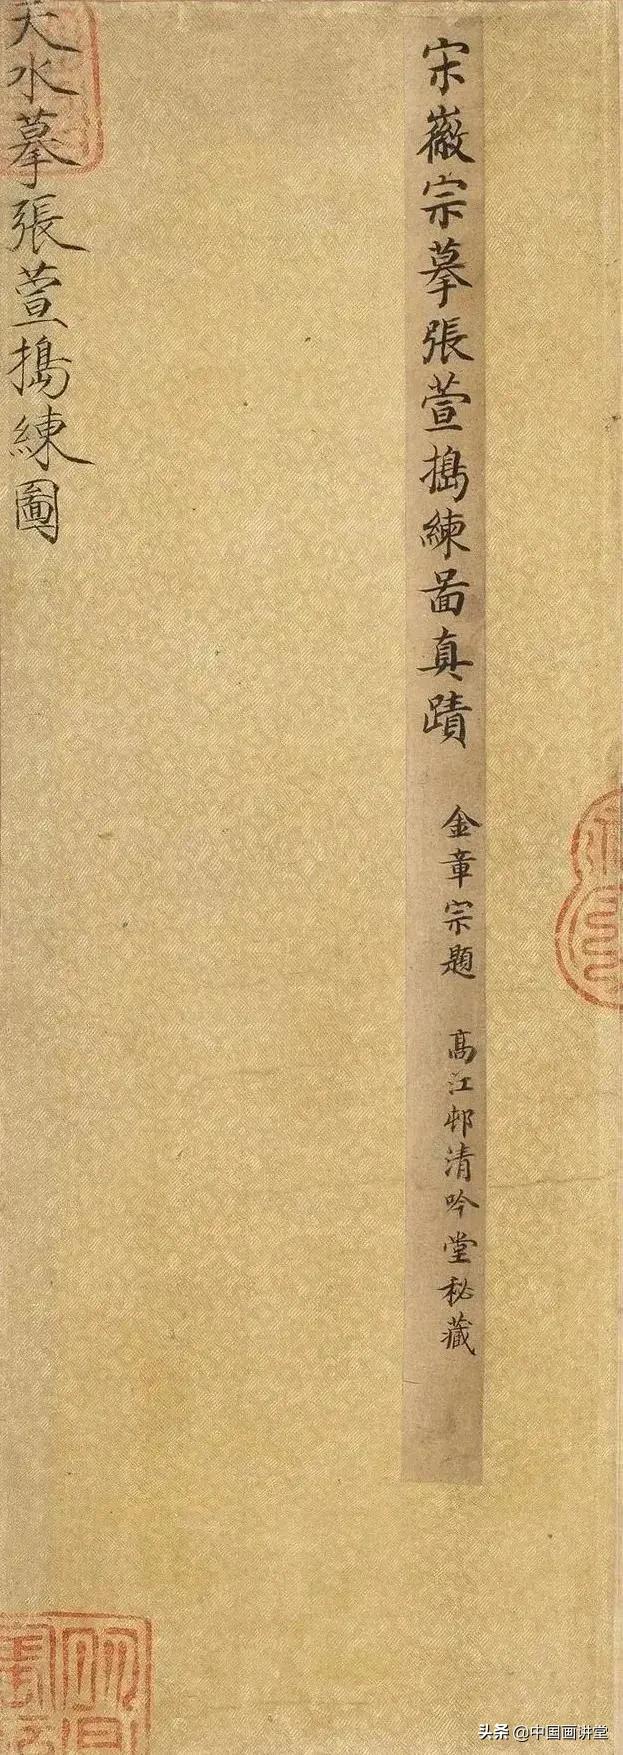 宋徽宗摹張萱搗練圖真蹟 金章宗題 高江邨清吟堂秘藏
天水摹張萱搗練圖
头条 @中国画讲堂